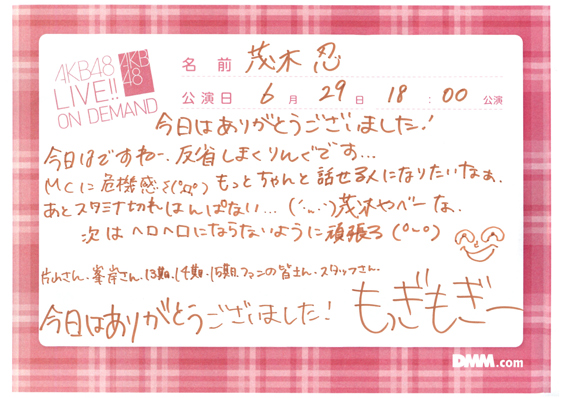 AKB48
LIVE!!
ON DEMAND
AKB
48
名前 茂木 忍
公演日 6月 29日 18:00 公演
今日はありがとうございました!
今日はですねー、反省しまくりんぐです...
MCに危機感を(°д°) もっとちゃんと話せる人になりたいなぁ。
あとスタミナ切れはんぱない...(´・_・`)茂木やべーな。
次はヘロヘロにならないように頑張る(°∪°)
片山さん、峯岸さん、13期、14期、15期、ファンの皆さん、スタッフさん、
今日はありがとうございました!
もぎもぎー
DMM.com